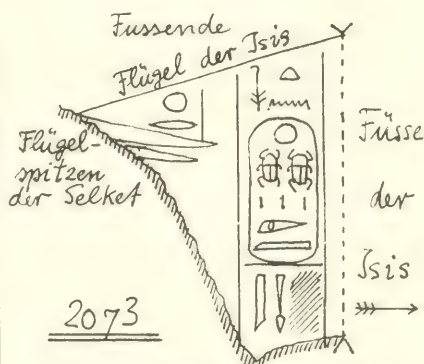 Fussende
Flügel der Isis
Flügel-
spitzen
der Selket
Füsse
der
Isis
2073